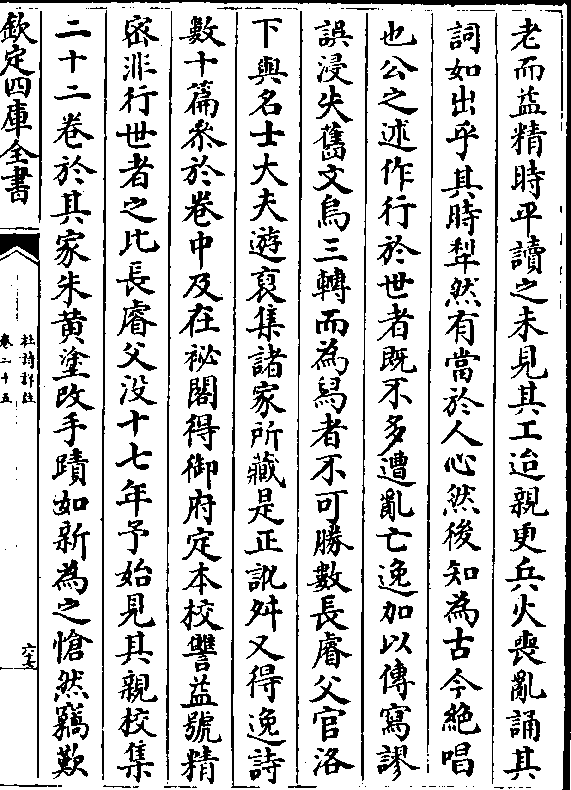 老而益精時平讀之未見其工迨親更兵火喪亂誦其
詞如出乎其時犁然有當於人心然後知為古今絶唱
也公之述作行於世者既不多遭亂亡逸加以傳寫謬
誤浸失舊文烏三轉而為舄者不可勝數長睿父官洛
下與名士大夫遊裒集諸家所藏是正訛舛又得逸詩
數十篇參於卷中及在祕閣得御府定本校讐益號精
密非行世者之比長睿父没十七年予始見其親校集
二十二卷於其家朱黄塗改手蹟如新為之愴然竊歎
欽定四庫全書
杜詩詳註
卷二十五
六十七